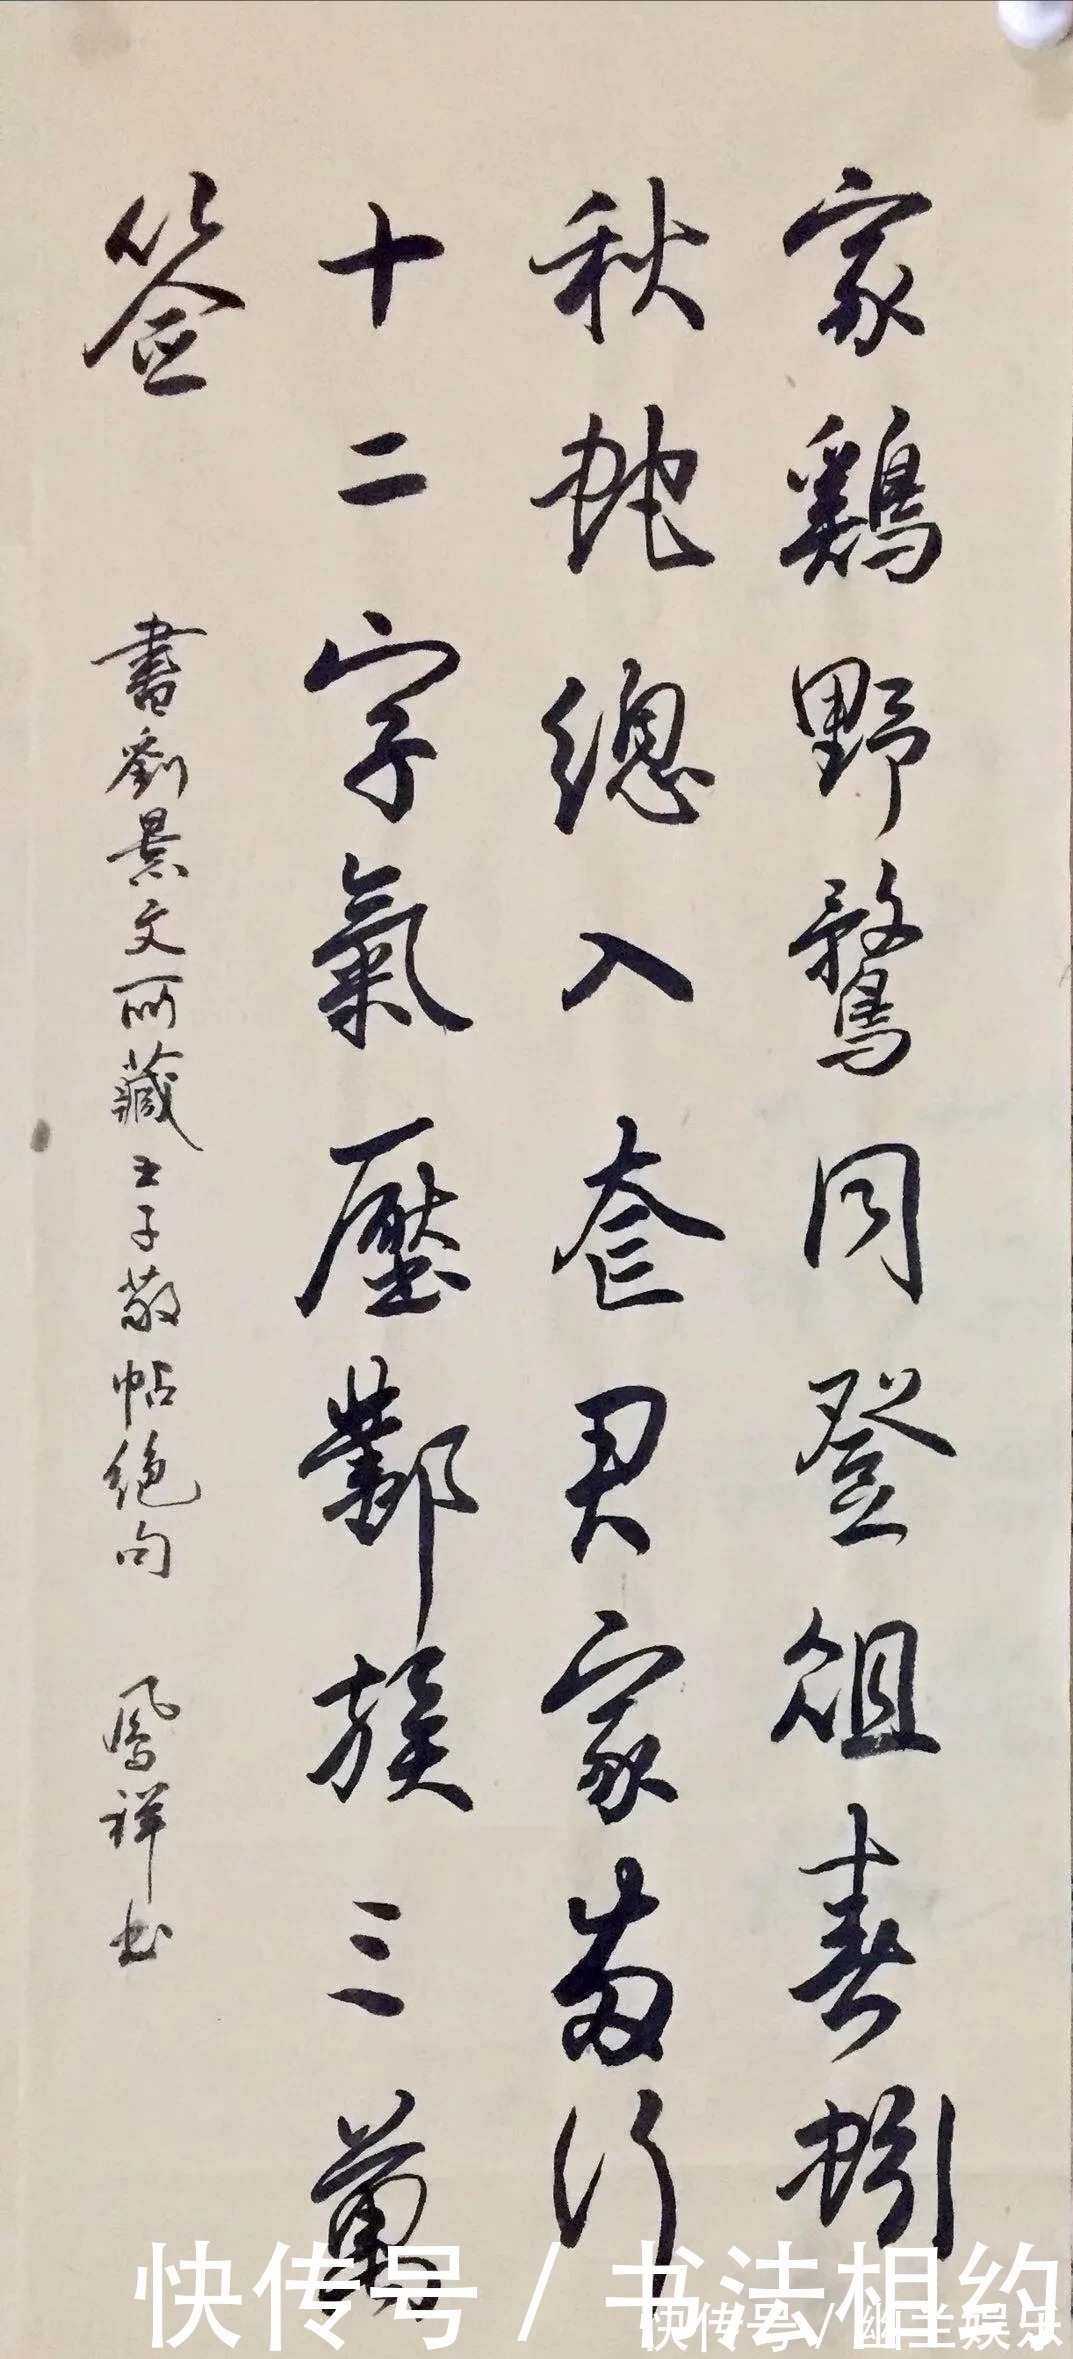 家鷄野鶩同登俎春蚓
秋蛇總入奩君家兩行
十二字氣壓鄴侯三萬
签
書劉景文所藏王子敬帖絶句 鳳祥书
快传号/书法相约
快传号/幽兰娱乐